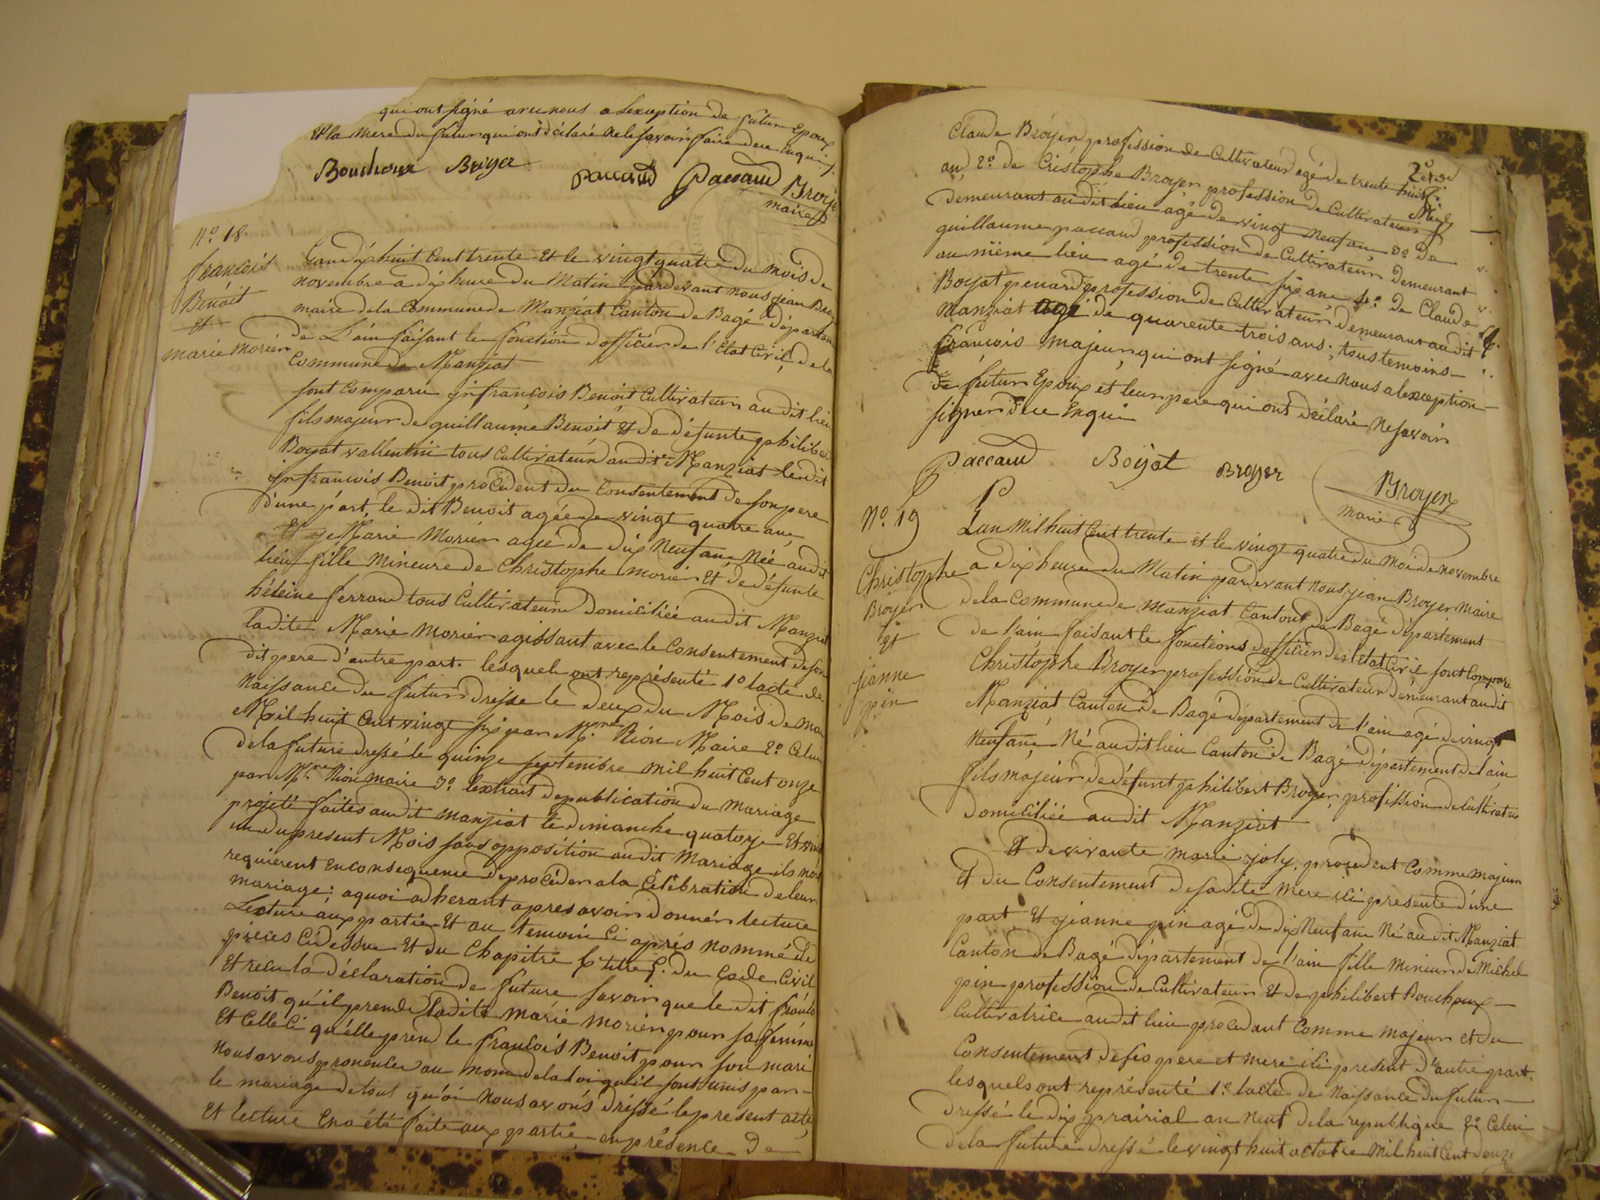 qui ont signé avec nous a lexception de futur Epoux
et la mere du futur qui ont déclaré ne le savoir faire dece enquis
Bouchoux Broyer paccaud Paccaud Broyer
maire
N.o 18.
francois
Benoit
Et
marie Morier
Lan dix huit cent trente Et le vingt quatre du mois de
novembre a dix heure du Matin pardevant nous jean Bro
maire de la Commune de Manziat Canton de Bagé départem
de L'ain faisant le fonction dofficier de l'Etat Civil de la
Commune de Manziat
sont comparu francois Benoit Cultivateur audit lieu
fils majeur de guillaume Benoit Et de défunte philibe
Boyat vallentin tous cultivateur audit Manziat ledit
francois Benoit procedent du Consentement de son pere
d'une part, le dit Benoit agée de vingt quatre an,
Et Marie Morier agée de dix Neuf an Née audit
lieu fille Mineure de Christophe morier Et de défunte
héleine ferrand tous Cultivateur domiciliée audit Manziat
ladite Marie Morier agissant avec le Consentement de son
dit pere d'autre part. lesquel ont représenté 1o lacte de
Naissance du futur dresse le deux du Mois de mar
Mil huit Cent vingt six par Mr Rion Maire 2o Celui
de la future dresse le quinze septembre mil huit Cent onze
par Mr Rion maire 3o lextrait de publication du mariage
projeté faites audit manziat le dimanche quatorze Et vin
un du present Mois sans opposition audit Mariage ils nous
requierent en consequence de proceder a la Célébration de leur
mariage; aquoi adherant apres avoir donner lecture
Lecture aux partie Et au temoin ci après nommé de
pieces cidessus Et du Chapitre 6 titre 5. du Code Civil
Et recu la déclaration de future savoir que le dit francois
Benoit qu'il prend ladite marie Morier pour sa femme
Et Celle Ci qu'elle prend le francois Benoit pour son mari
Nous avons prononcer au nom de la loi qu'il sont unis par
le mariage de tout quoi Nous avons dressé le present acte,
Et lecture En a été faite aux partie en présence De
Claude Broyer profession de Cultivateur agé de trente huit
an 2o de Cristophe Broyer profession de Cultivateur
demeurant audit lieu agé de vingt Neuf an 3o de
guillaume paccaud profession de Cultivateur demeurant
au même lieu agé de trente six ans 4o de Claude
Boyat penard profession de Cultivateur demeurant audit
Manziat agé de quarente trois ans; tous temoins
francois majeur qui ont signé avec nous a lexception
de futur Epoux et leur pere qui ont déclaré ne savoir
signer dece Enqui
Paccaud Boyat Broyer Broyer
maire
N.o 19
Christophe
Broyer
Et
jeanne
pin
Lan Mil huit Cent trente et le vingt quatre du Moi de novembre
a dix heure du Matin pardevant nous jean Broyer Maire
de la Commune de Manziat Canton de Bagé département
de l'ain faisant le fonctions dofficier de l'Etat Civil sont Comparu
Christophe Broyer profession de Cultivateur demeurant audit
Manziat Canton de Bagé département de l'ain agé de vingt
Neuf an Né audit lieu Canton de Bagé département de l'ain
fils majeur de défunt philibert Broyer profession de Cultivateur
Domiciliée audit Manziat
Et de vivante marie joly, procedent Comme majeur
Et du Consentement de sadite mere ici presente d'une
part Et jeanne pin agé de dix Neuf an Né audit Manziat
Canton de Bagé département de l'ain fille mineur de Michel
pin profession de Cultivateur Et de philibert Bouchoux
Cultivatrice audit lieu procedant Comme majeur et du
Consentement de ses pere et mere ici present d'autre part.
lesquels ont représenté 1o lacte de Naissance du futur
dressé le dix prairial an Neuf de la republique 2o Celui
de la future dressé le vingt huit octobre Mil huit Cent douze